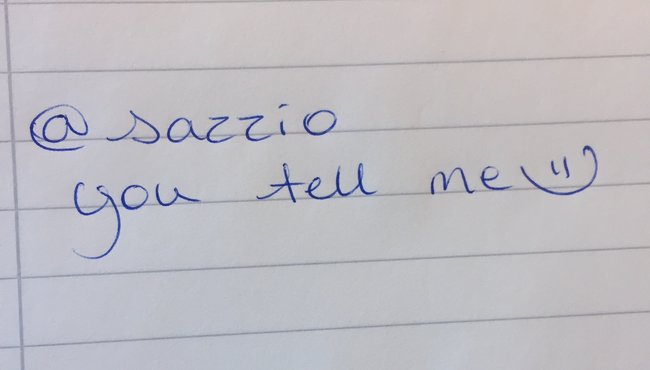 @sazzio
you tell me